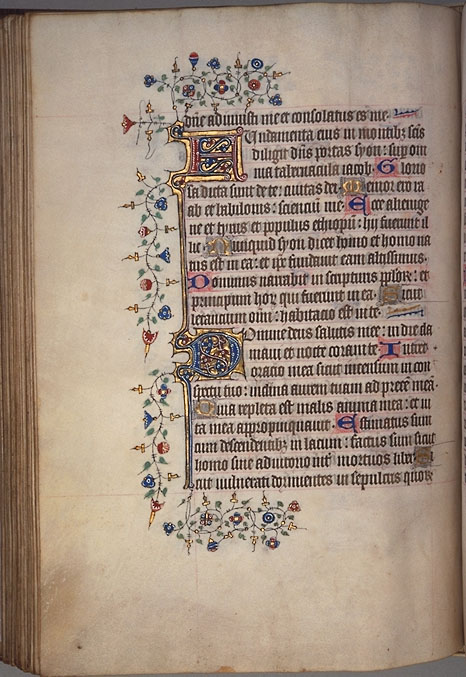 dn̄e adiuuisti me et consolatus es me.
Fundamenta eius in montibꝫ scīs
diligit dn̄s portas syon : sup om
nia tabernacula iacob. Glorio
sa dicta sunt de te : ciuitas dei. Memor ero ra
ab et babilonis : scienciū me. Ecce alienige
ne et tyrus et populus ethiopū : hij fuerunt il
lic. Nunquid syon dicet homo et homo na
tus est in ea : et ip̄e fundauit eam altissimus.
Dominus narrabit in scripturis pp̄lorꝫ : et
principum horꝫ qui fuerunt in ea. Sicut
letancium om̄i : habitacio est in te.
Domine deus salutis mee : in die cla
maui et nocte coram te. Intret
oratio mea sicut incensum in con
spectu tuo : inclina aurem tuam ad precē meā.
Quia repleta est malis anima mea : et ui
ta mea appropinquauit. Estimatus sum
cum descendentibꝫ in lacum : factus sum sicut
homo sine adiutorio int̄ mortuos liber. S
icut uulnerati dormientes in sepulcris quorꝫ